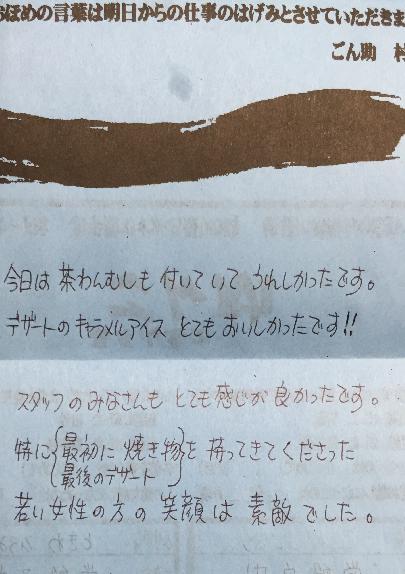 おほめの言葉は明日からの仕事のはげみとさせていただきま
ごん助 村
今日は 茶わんむしも 付いていて うれしかったです。
デザートの キャラメルアイス とても おいしかったです!!
スタッフの みなさんも とても 感じが 良かったです。
特に{最初に 焼き物
最後の デザート}を 持ってきてくださった
若い女性の方の 笑顔は 素敵でした。